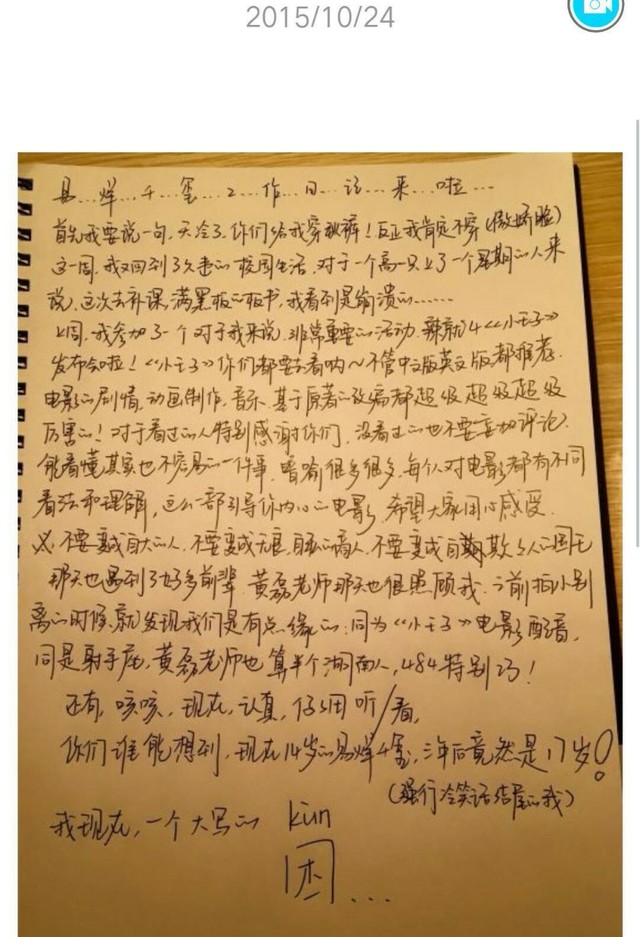 2015/10/24
易...烊...千...玺...工...作...日...记...来...啦...
首先我要说一句,天冷了,你们给我穿秋裤!反正我肯定不穿(傲娇脸)
这一周,我又回到了久违的校园生活,对于一个高一只上了一个星期的人来
说,这次去补课,满黑板的板书,我看到是崩溃的......
上周,我参加了一个对于我来说,非常重要的活动,辣就4《小王子》
发布会啦!《小王子》你们都要去看呐~不管中文版英文版都推荐.
电影的剧情,动画制作,音乐,基于原著的改编都超级超级超级
厉害的!对于看过的人特别感谢你们,没看过的也不要妄加评论.
能看懂其实也不容易的一件事,暗喻很多很多,每个人对电影都有不同
看法和理解,这么一部引导你内心的电影,希望大家用心感受.
不要变成自大的人,不要变成无良,自私的商人,不要变成自欺欺人的国王
那天也遇到了好多前辈,黄磊老师那天也很照顾我,之前拍小别
离的时候就发现我们是有点缘的:同为《小王子》电影配音,
同是射手座,黄磊老师也算半个湖南人,484特别巧!
还有,咳咳,现在,认真,仔细听/看,
你们谁能想到,现在14岁的易烊千玺,三年后竟然是17岁!
(强行冷笑话结尾的我)
我现在,一个大写的 kùn
困...